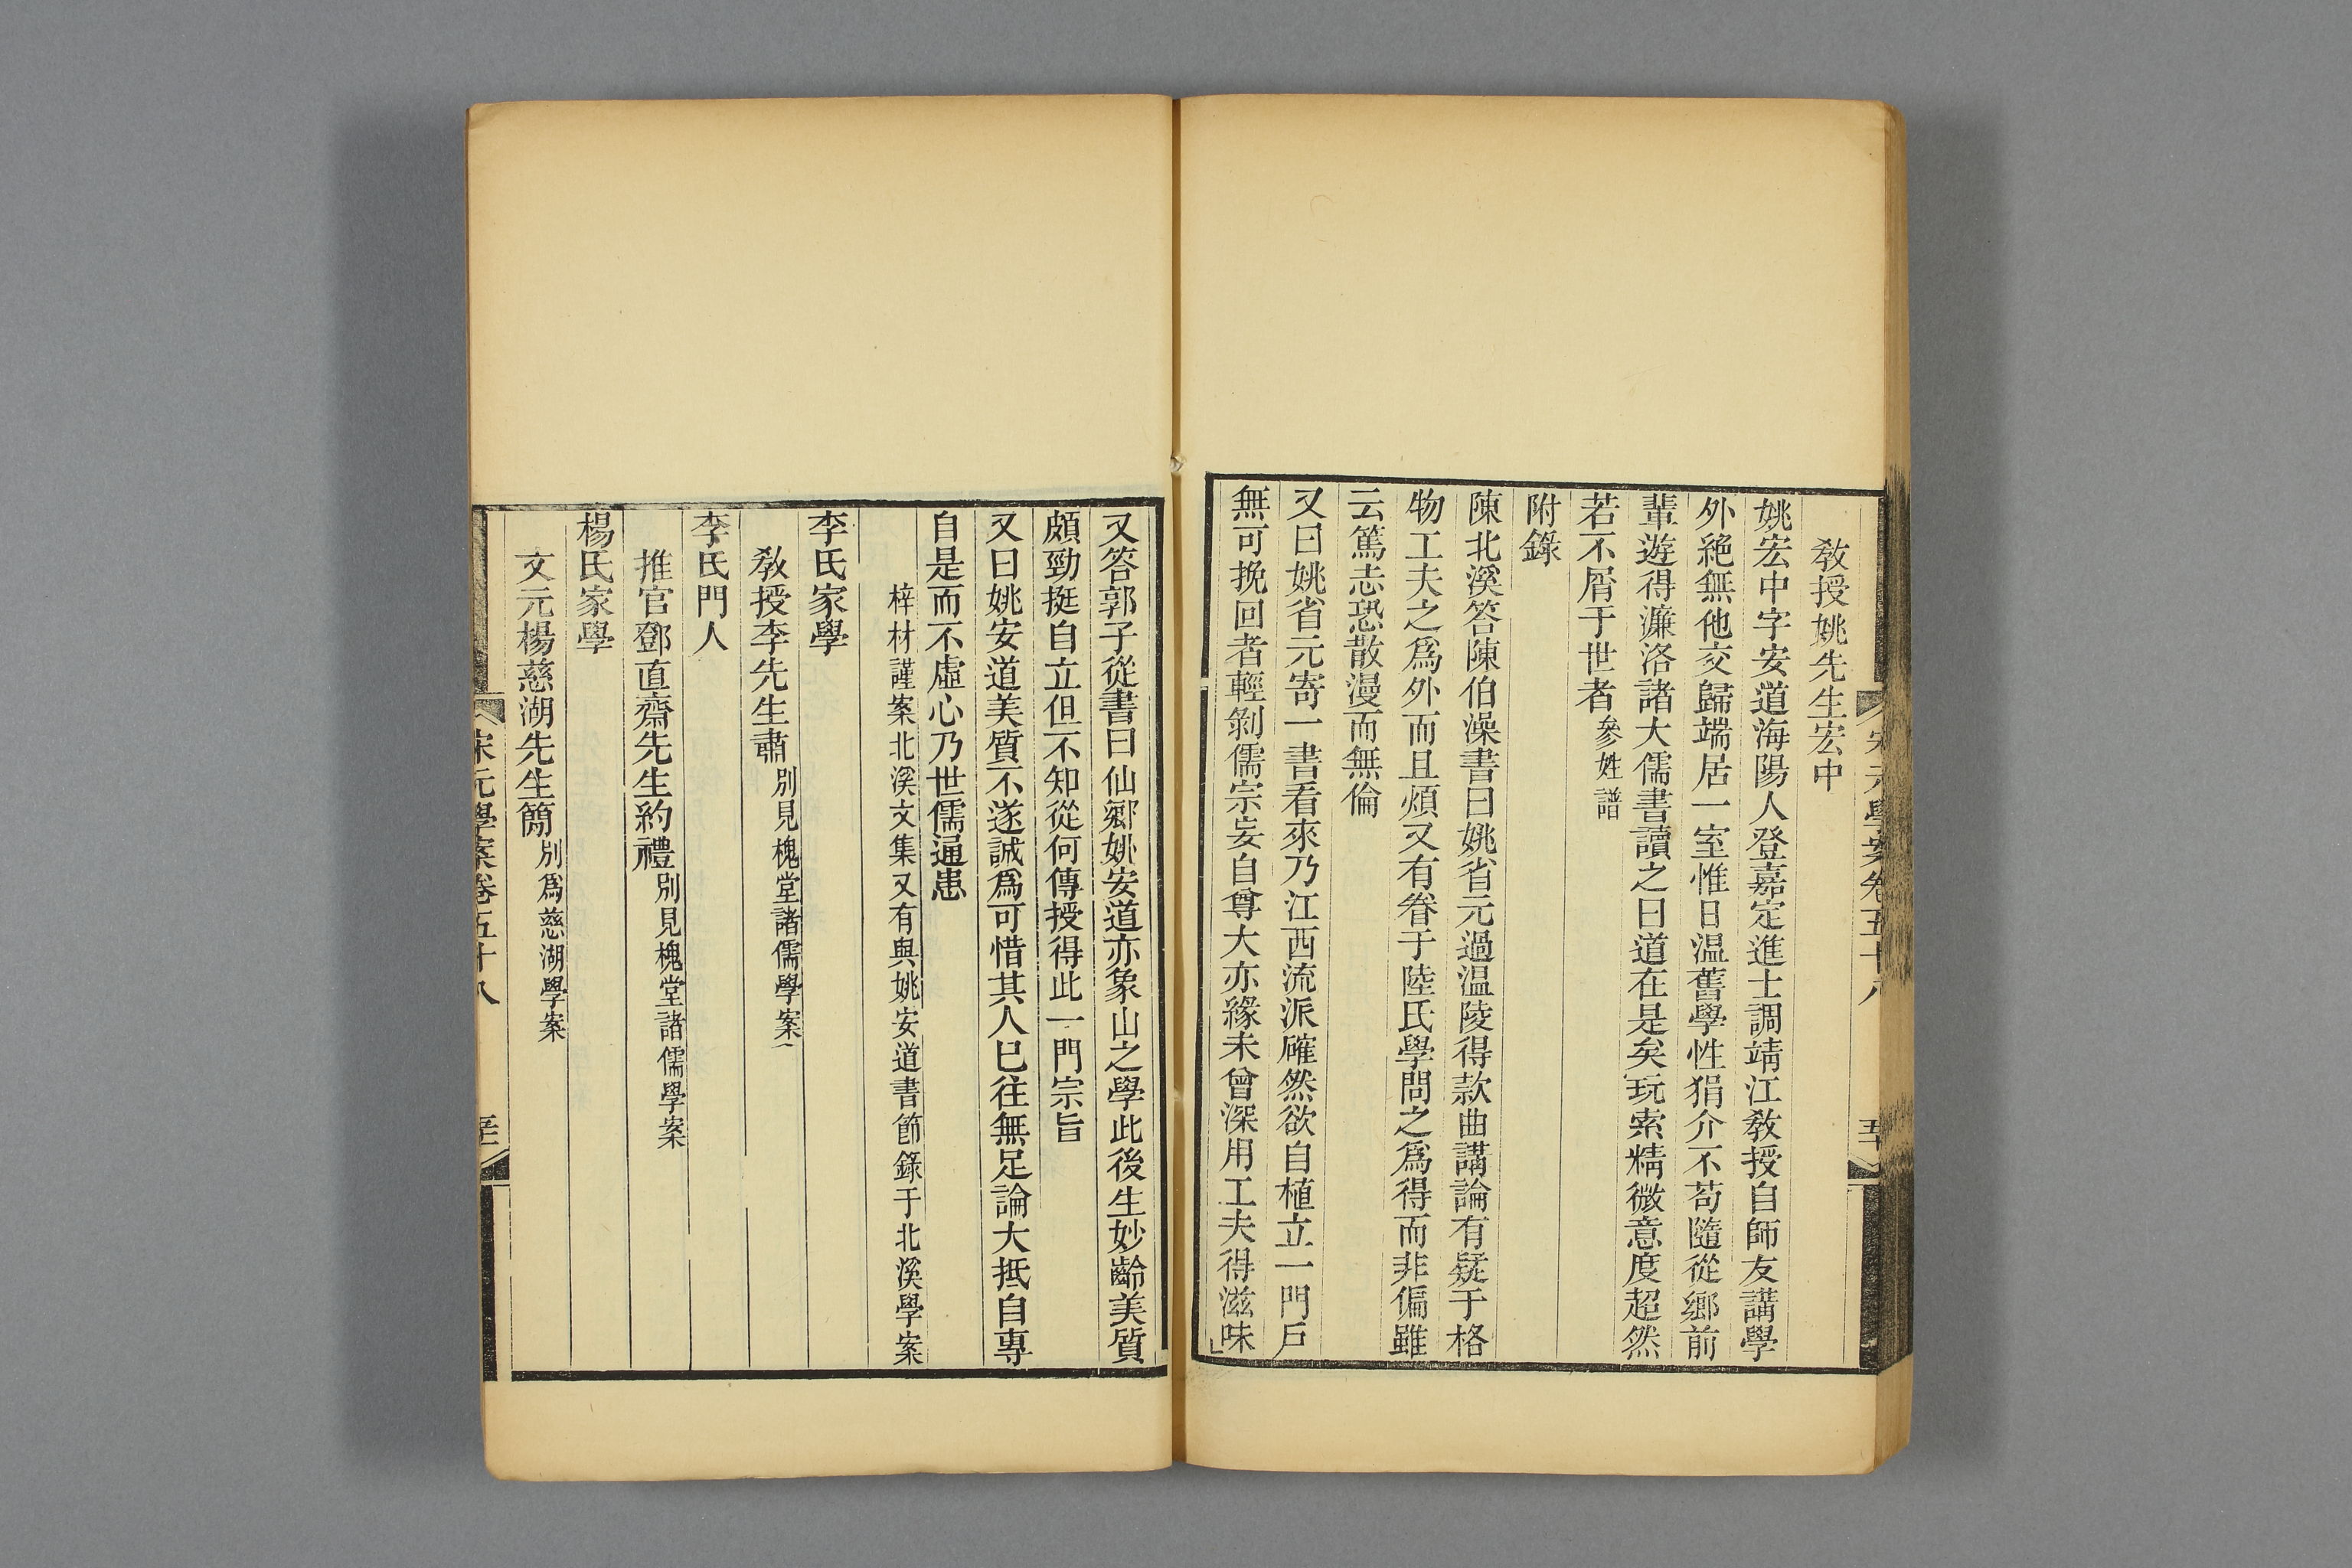 宋元學案卷五十八
教授姚先生宏中
姚宏中字安道海陽人登嘉定進士調靖江教授自師友講學
外絶無他交歸端居一室惟日温舊學性狷介不苟隨從鄉前
輩遊得濂洛諸大儒書讀之曰道在是矣玩索精微意度超然
若不屑于世者參姓譜
附錄
陳北溪答陳伯澡書曰姚省元過温陵得款曲講論有疑于格
物工夫之爲外而且煩又有眷于陸氏學問之爲得而非偏雖
云篤志恐散漫而無倫
又曰姚省元寄一書看來乃江西流派確然欲自植立一門戶
無可挽回者輕剝儒宗妄自尊大亦緣未曾深用工夫得滋味
又答郭子從書曰仙鄉姚安道亦象山之學此後生妙齡美質
頗勁挺自立但不知從何傳授得此一門宗旨
又曰姚安道美質不遂誠爲可惜其人巳往無足論大抵自專
自是而不虛心乃世儒通患
梓材謹案北溪文集又有與姚安道書節錄于北溪學案
李氏家學
教授李先生肅別見槐堂諸儒學案
李氏門人
推官鄧直齋先生約禮別見槐堂諸儒學案
楊氏家學
文元楊慈湖先生簡別爲慈湖學案
宋元學案卷五十八